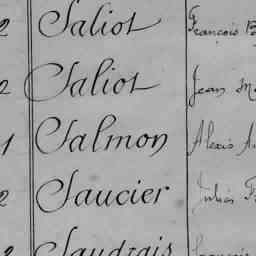 2 Saliot François
2 Saliot Jean
1 Salmon Alexis
2 Saucier Julien
2 Saudrais François